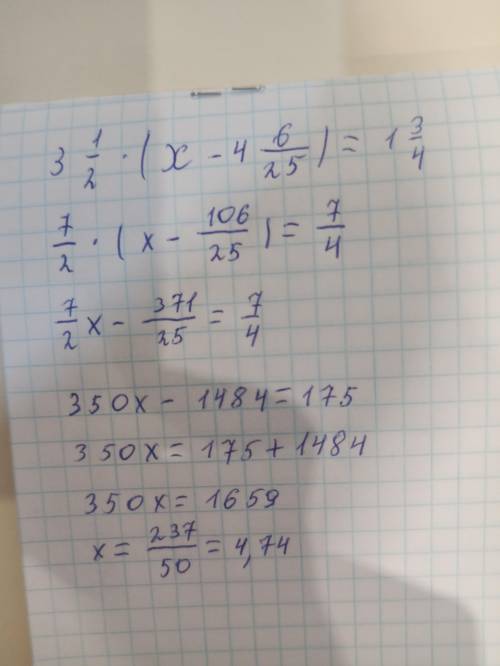 3 1/2 · (x - 4 6/25) = 1 3/4
7/2 · (x - 106/25) = 7/4
7/2 x - 371/25 = 7/4
350x - 1484 = 175
350x = 175 + 1484
350x = 1659
x = 237/50 = 4,74